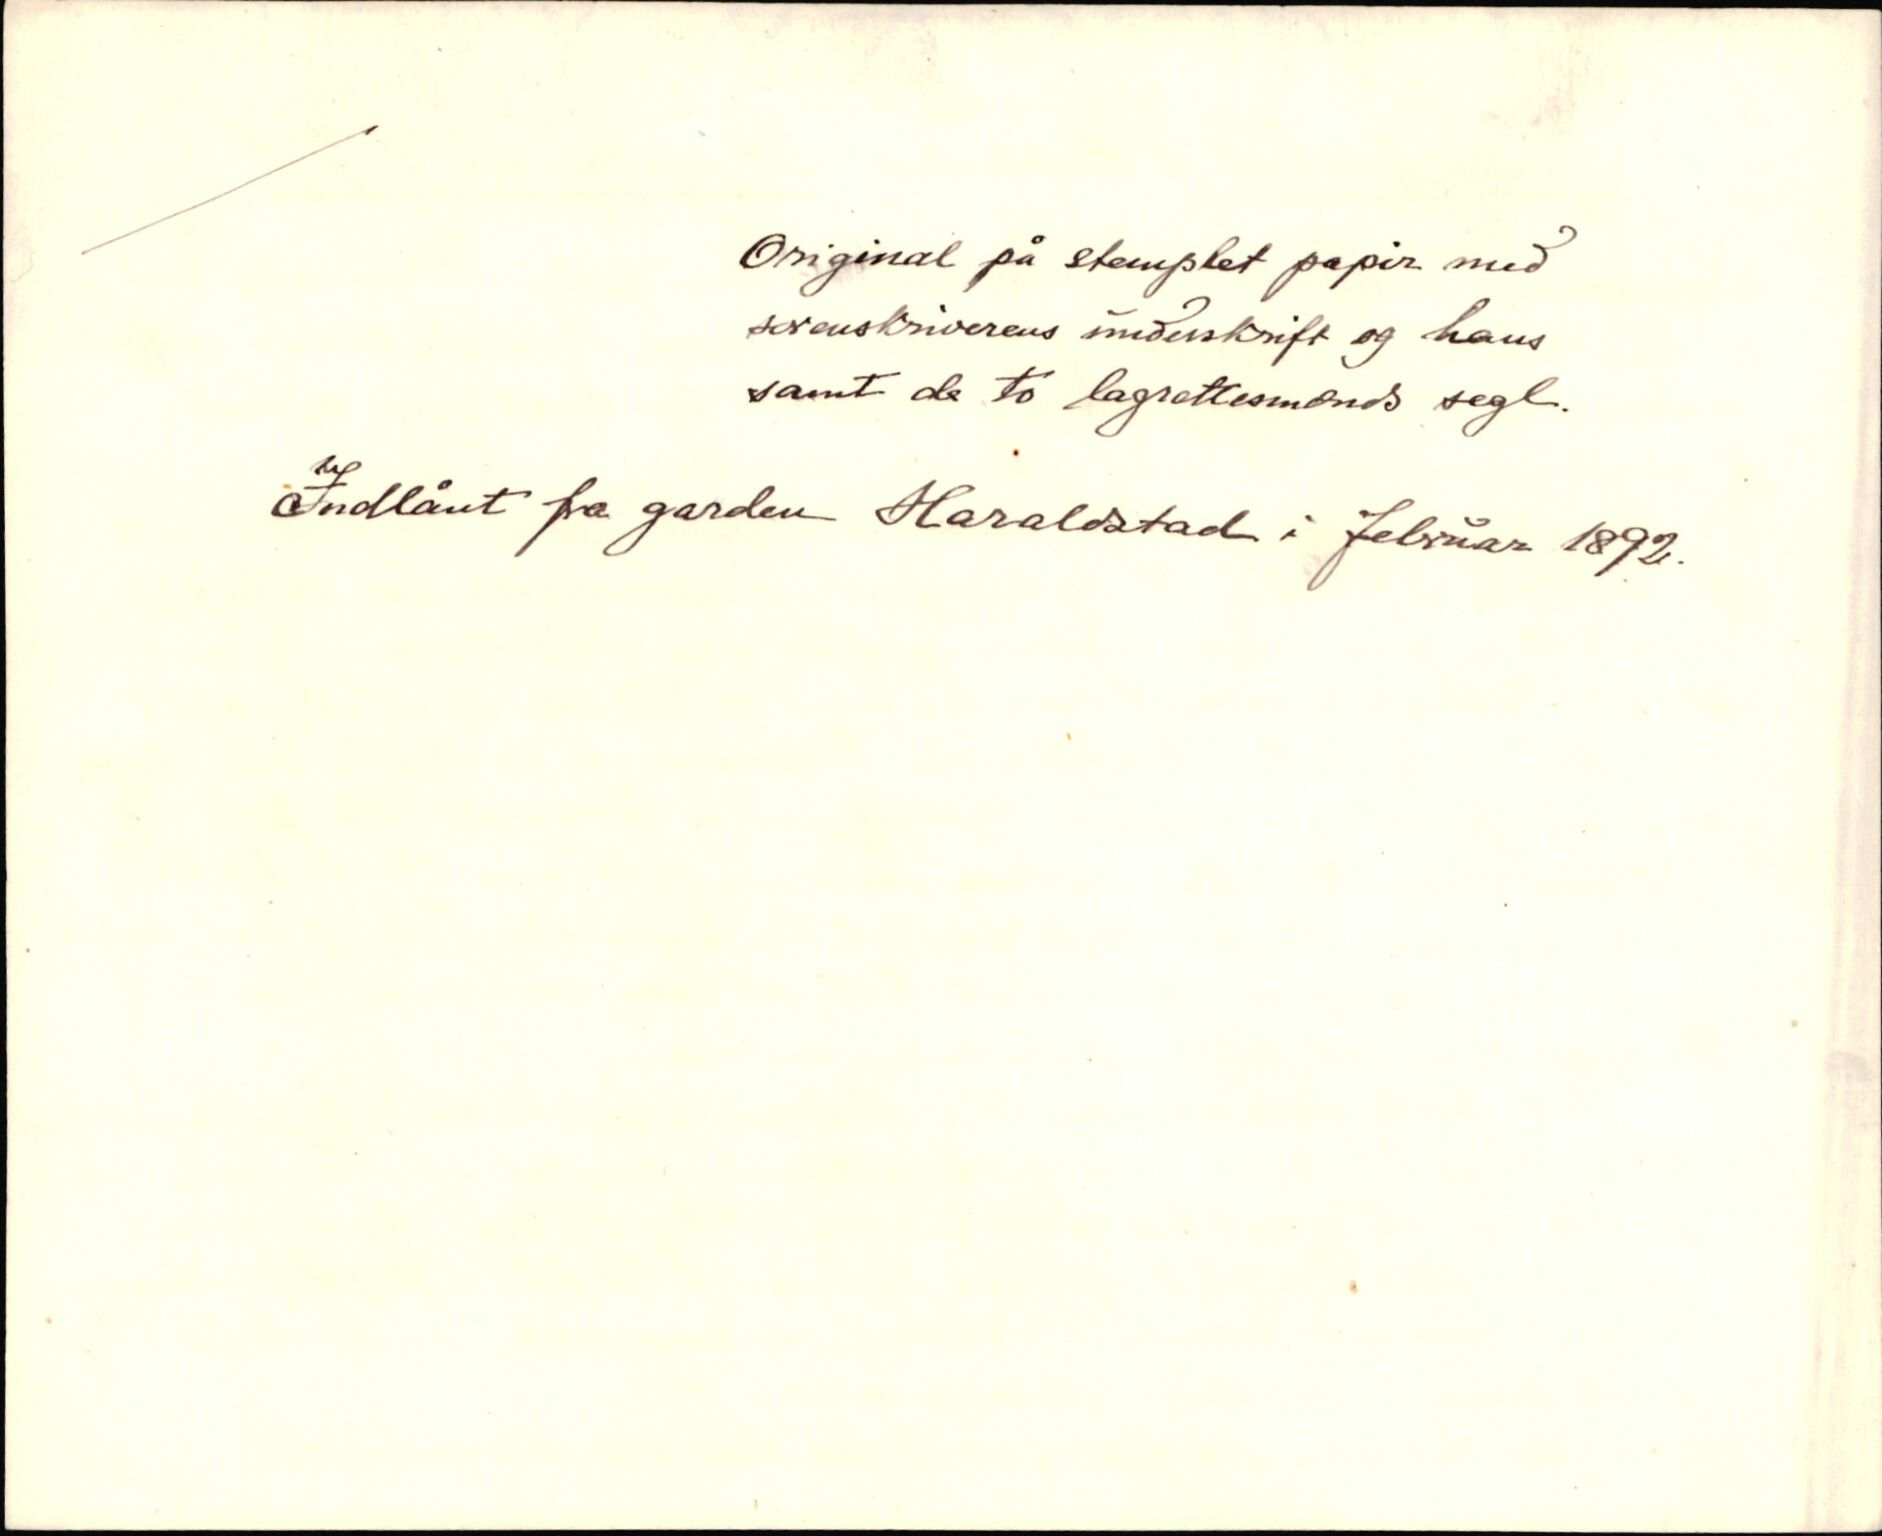 Original på stemplet papir med
sorenskriverens underskrift og hans
samt de to lagrettesmænds segl.
Indlånt fra garden Haraldstad i februar 1892.